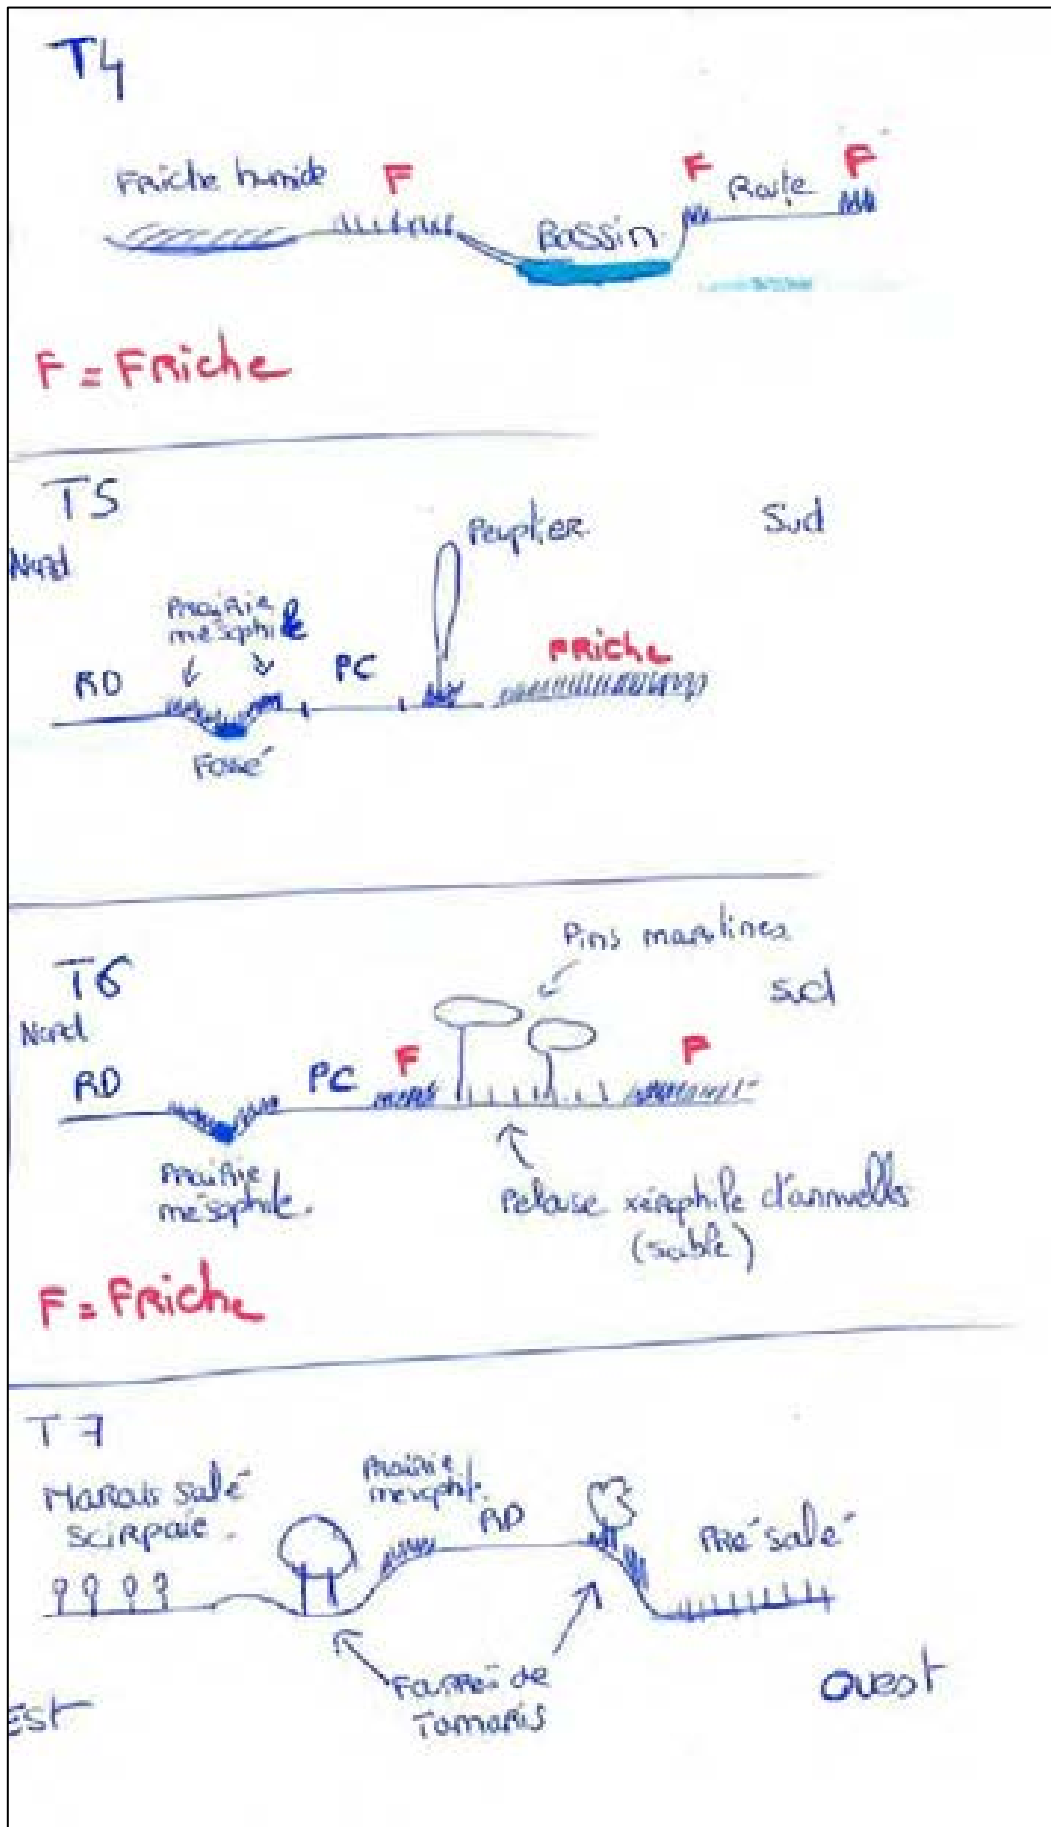 T4
Friche humide
F
F
Route
F
Bassin
F = Friche
T5
Peuplier
Sud
Nord
Prairie
mésophile
FRiche
RD
PC
Fossé
Pins maritimes
T6
Sud
Nord
RD
PC
F
F
Prairie
mésophile.
Pelouse xérophile d'annuelles
(sable)
F = Friche
T7
Marais salé
scirpaie.
Prairie
mésophile.
RD
Pré salé
Fourré de
Tamaris
Ouest
EST